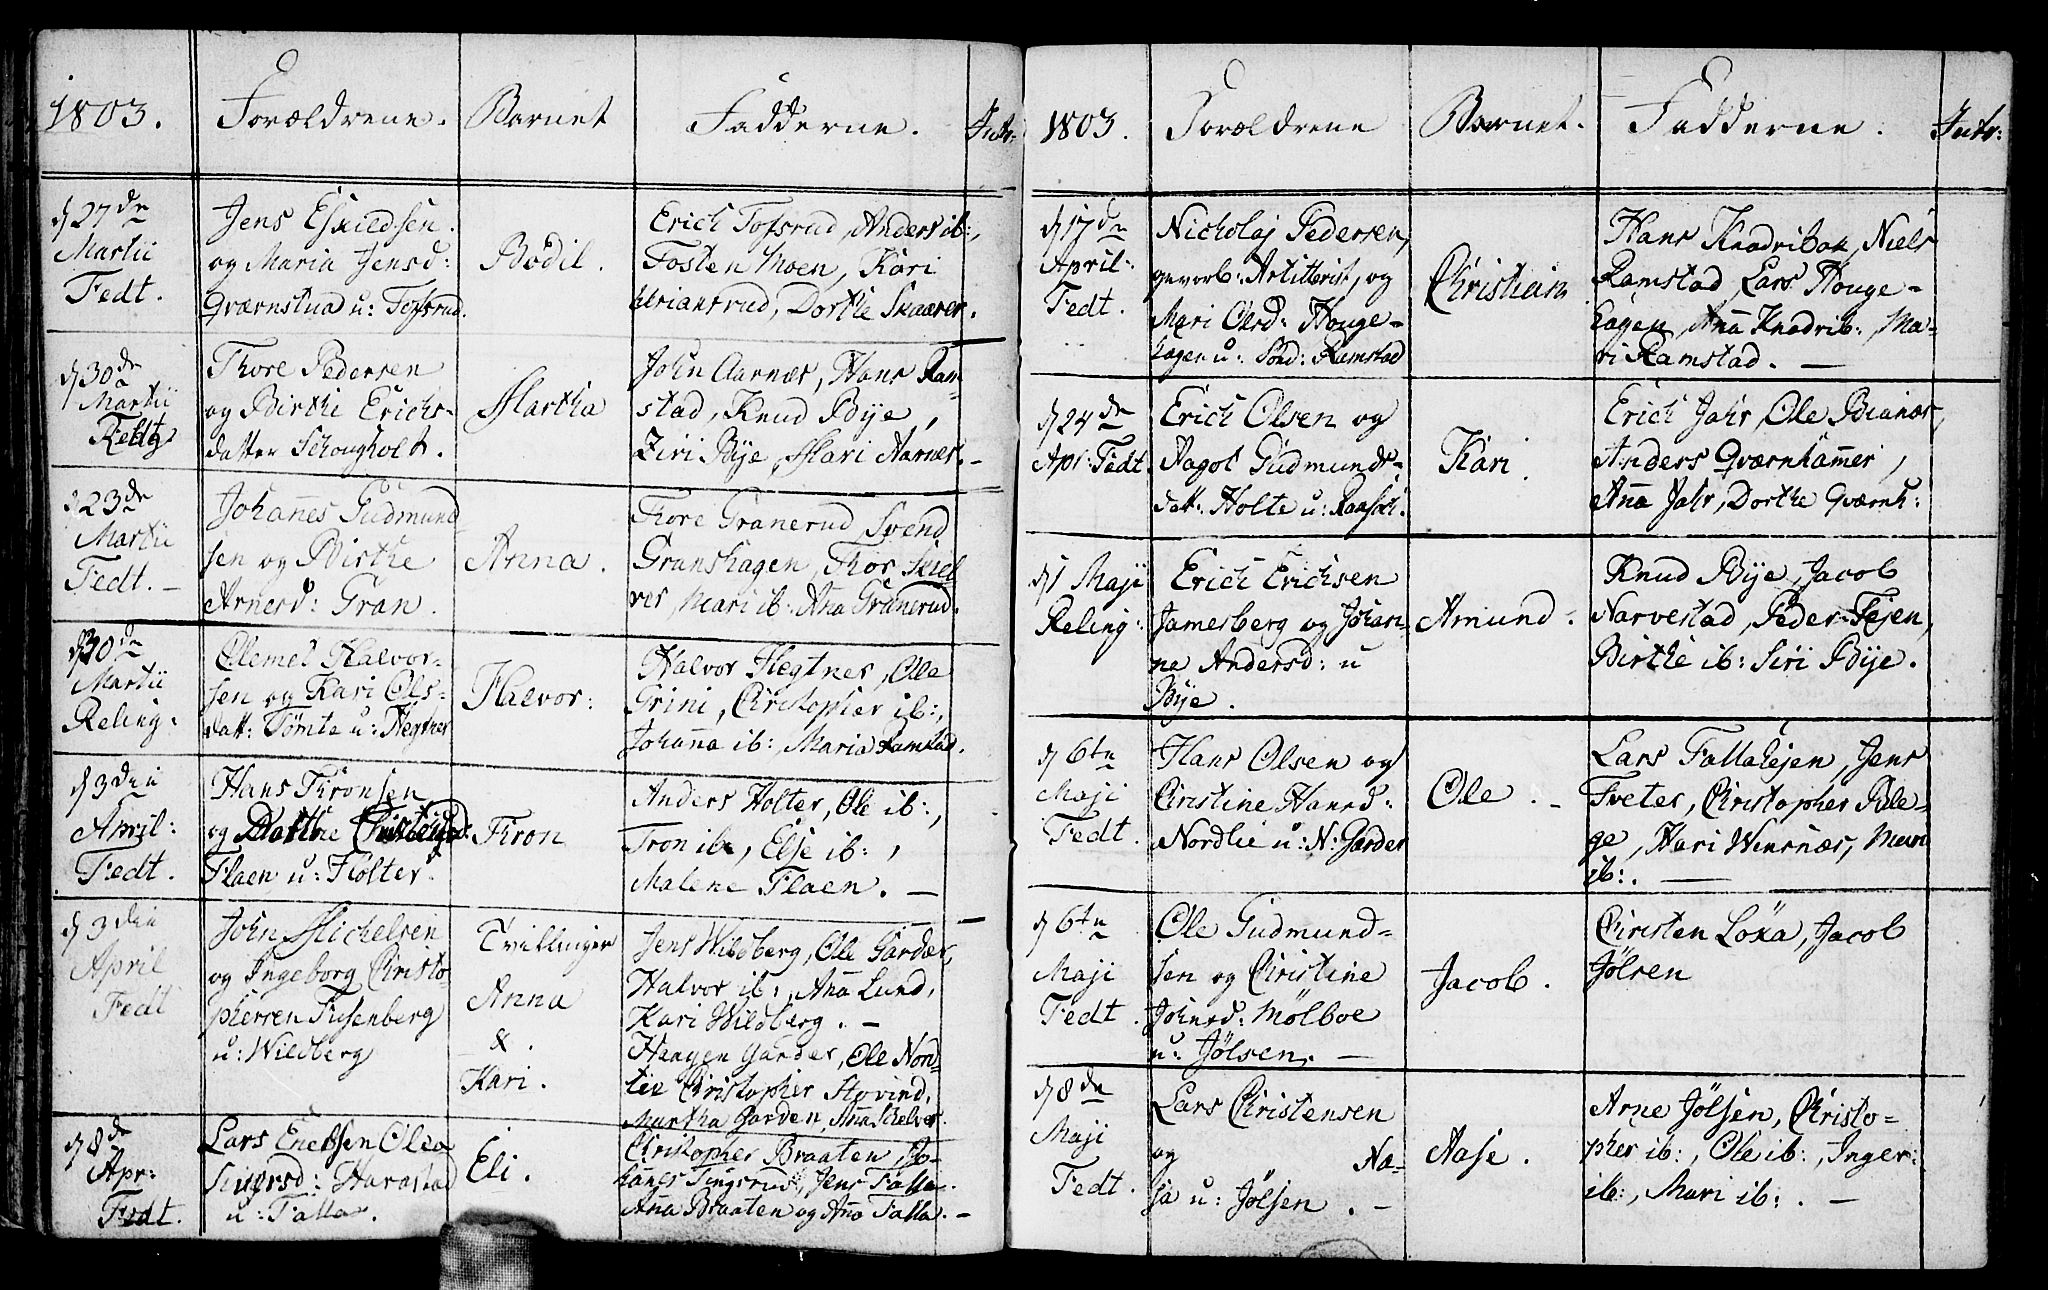 1803. Forældrene. Barnet Fadderne. Intr:
d 27de Martii Fedt.
Jens Eskildsen.
og Maria Jensd:
Qværnstua u: Tofsrud.
Bodil.
Erich Tofsrud, Anders ib:,
Tosten Moen, Kari
Urianrud, Dorthe Skaarer.
d 30de Martii
Thore Pedersen
og Birthe Erichs-
datter Schougholt.
Martha
John Aarnæs, Hans Ram-
stad, Knud Bye,
Siri Bye, Mari Aarnæs. -
d 23de Martii Fedt. -
Johannes Gudmund-
sen og Birthe
Arnesd: Gran.
Anna.
Thore Granerud Svend
Granshagen, Thor Skiel
ver, Mari ib: Ana Granerud.
30de Martii Reling:
Olemel Halvor-
sen og Kari Ols-
datt: Tømte u: Hegtnes
Halvor:
Halvor Hegtnes, Ole
Grini, Christopher ib:,
Johana ib:, Maria Ramstad.
d 3den April: Fedt.
Hans Tronsen
og
Flaen u: Holter.
Tron
Anders Holter, Ole ib:,
Tron ib, Else ib:,
Malene Flaen. -
d 3den April Fedt
John Michelsen
og Ingeborg Christo-
phersen Fusenberg
u: Wildberg
Tvillinger
Anna
&.
Kari.
Jens Wildberg, Ole Garder,
Halvor ib:, Ana Lund,
Kari Wildberg. -
Haagen Garder, Ole Nord-
lie Christopher Hovind,
Martha Garden, Ana Skelver.
d 8de Apr: Fedt.
Lars
Siversd: Harastad
u: Falla.
Eli.
Christopher Braaten, Jo-
hanes Tingsrud, Jens Falla.
Ana Braaten og Ana Falla. -
1803. Forældrene Barnet. Fadderne. Intr:
d 17de April: Fedt.
Nicholaj Pedersen,
gevorb: Artillerist, og
Mari Olesd: Houge-
hagen u: Sønd: Ramstad
Christian
Hans Knadribak, Niels
Ramstad, Lars Houge-
hagen, Ana Knadrib:, Ma-
ri Ramstad. -
d 24de Apr: Fedt.
Erich Olsen og
Aagot Gudmunds-
datt: Holte u: Raasok.
Kari.
Erich Jahr, Ole Bianæs,
Anders Qværnhamer,
Ana Jahr, Dorthe Qværnh:
d 1 Maji Reling:
Erich Erichsen
Jamesberg og Johan-
ne Andersd: u
Bye.
Amund.
Knud Bye, Jacob
Narvestad, Peder Tejen,
Birthe ib: Siri Bye.
d 6te Maji Fedt.
Hans Olsen og
Christine Hansd:
Nordlie u: N: Garder
Ole. -
Lars Fallahejen, Jens
Tveter, Christopher Rile-
ge, Kari Wensnæs, Mari
ib:. -
d 6te Maji Fedt.
Ole Gudmund-
sen og Christine
Johnsd: Mölboe
u: Jølsen. -
Jacob.
Christen Löxa, Jacob
Jølsen
d 8de Maji Fedt.
Lars Christensen
og Na-
sa u: Jølsen. -
Aase.
Arne Jølsen, Christo-
pher ib:, Ole ib:, Inger:
ib:, Mari ib:. -